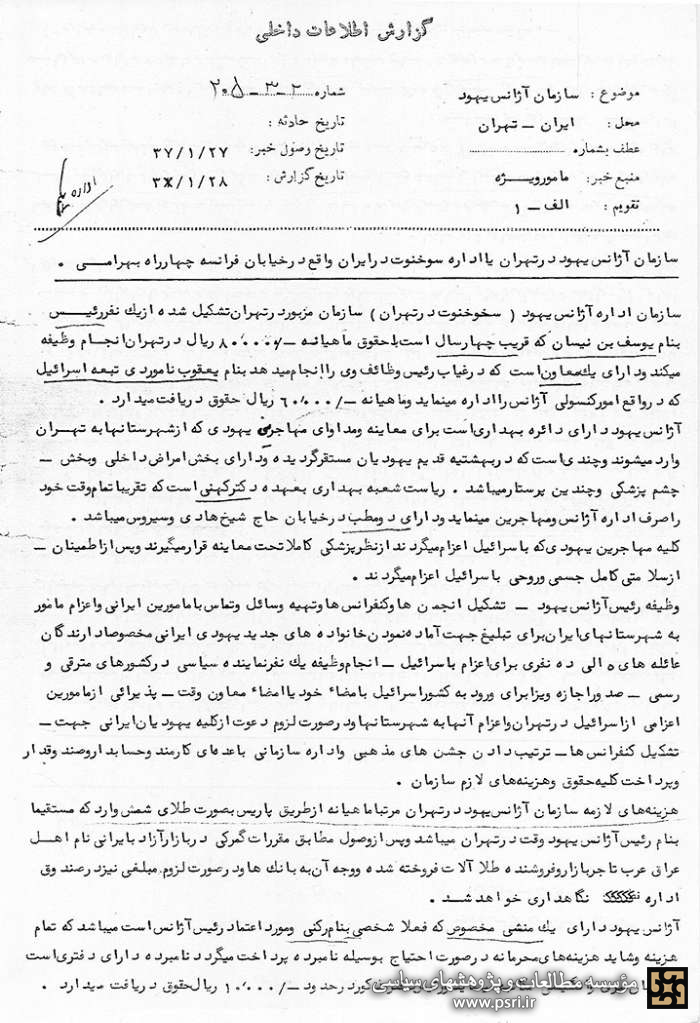 گزارش اطلاعات داخلی
موضوع : سازمان آژانس یهود
شماره ۲-۳-۲۰۵
محل : ایران – تهران
تاریخ حادثه :
عطف بشماره
تاریخ وصول خبر: ۳۷/۱/۲۷
منبع خبر: مامورویژه
تاریخ گزارش : ۳۷/۱/۲۸
تقویم : الف – ۱
اداره
سازمان آژانس یهود درتهران یااداره سوخنوت درایران واقع درخیابان فرانسه چهارراه بهرامی .
سازمان اداره آژانس یهود ( سخوخنوت درتهران ) سازمان مزبوردرتهران تشکیل شده ازیک نفررئیس
بنام یوسف بن نیسان که قریب چهارسال است باحقوق ماهیانه –/۸۰٬۰۰۰ ریال درتهران انجام وظیفه
میکند ودارای یک معاون است که درغیاب رئیس وظائف وی راانجام میدهد بنام یعقوب ناموردی تبعه اسرائیل
که درواقع امورکنسولی آژانس رااداره مینماید وماهیانه –/۶۰٬۰۰۰ ریال حقوق دریافت میدارد .
آژانس یهود دارای دائره بهداری است برای معاینه ومداوای مهاجرین یهودی که ازشهرستانهابه تهران
وارد میشوند وچندی است که دربهشتیه قدیم یهودیان مستقرگردیده ودارای بخش امراض داخلی وبخش –
چشم پزشکی وچندین پرستارمیباشد . ریاست شعبه بهداری بعهده دکترکهنی است که تقریبا تمام وقت خود
راصرف اداره آژانس ومهاجرین مینماید ودارای دومطب درخیابان حاج شیخ هادی وسیروس میباشد .
کلیه مهاجرین یهودی که باسرائیل اعزام میگردند ازنظرپزشکی کاملا تحت معاینه قرارمیگیرند وپس ازاطمینان –
ازسلامتی کامل جسمی وروحی باسرائیل اعزام میگردند .
وظیفه رئیس آژانس یهود – تشکیل انجمن هاوکنفرانس هاوتهیه وسائل وتماس بامامورین ایرانی واعزام مامور
به شهرستانهای ایران برای تبلیغ جهت آماده نمودن خانواده های جدید یهودی ایرانی مخصوصا دارندگان
عائله های ۵ الی ده نفری برای اعزام باسرائیل – انجام وظیفه یک نفرنماینده سیاسی درکشورهای مترقی و
رسمی – صدوراجازه ویزابرای ورود به کشوراسرائیل بامضاء خود یاامضاء معاون وقت – پذیرائی ازمامورین
اعزامی ازاسرائیل درتهران واعزام آنهابه شهرستانهاودرصورت لزوم دعوت ازکلیه یهودیان ایرانی جهت –
تشکیل کنفرانس ها – ترتیب دادن جشن های مذهبی واداره سازمانی باعده ای کارمند وحسابداروصندوقدار
وپرداخت کلیه حقوق وهزینه های لازم سازمان .
هزینه های لازمه سازمان آژانس یهود درتهران مرتبا ماهیانه ازطریق پاریس بصورت طلای شمش وارد که مستقیما
بنام رئیس آژانس یهود وقت درتهران میباشد وپس ازوصول مطابق مقررات گمرکی دربازارآزاد بایرانی نام اهل
عراق عرب تاجربازاروفروشنده طلاآلات فروخته شده ووجه آن به بانک هاودرصورت لزوم مبلغی نیزدرصندوق
اداره نگاهداری خواهد شد .
آژانس یهود دارای یک منشی مخصوص که فعلا شخصی بنام رکنی ومورد اعتماد رئیس آژانس است میباشد که تمام
هزینه وشاید هزینه های محرمانه درصورت احتیاج بوسیله نامبرده پرداخت میگردد نامبرده دارای دفتری است
حدود –/۱۰٬۰۰۰ ریال حقوق دریافت میدارد .
مؤسسه مطالعات و پژوهشهای سیاسی
www.psri.ir